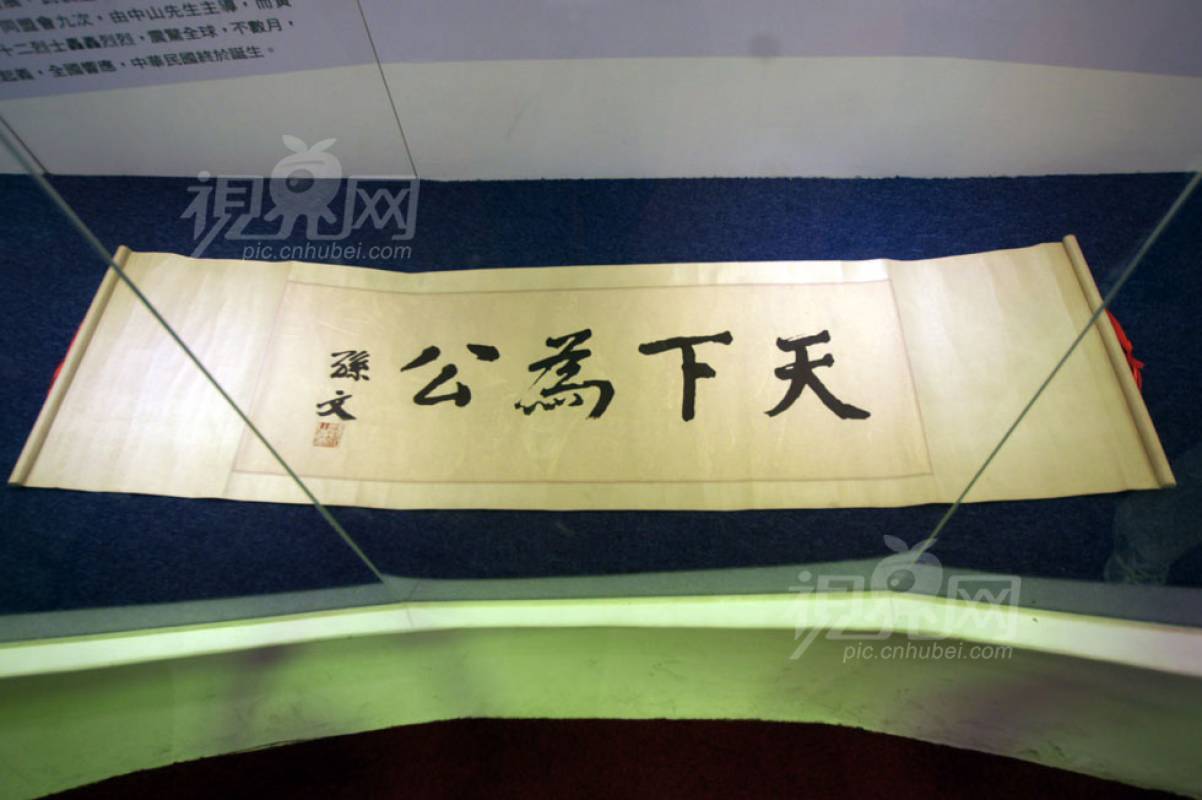 同盟會九次，由中山先生主導，而黃
十二烈士轟轟烈烈，震驚全球，不數月，
起義，全國響應，中華民國終於誕生。
視界网
pic.cnhubei.com
天下為公
孫文
視界网
pic.cnhubei.com